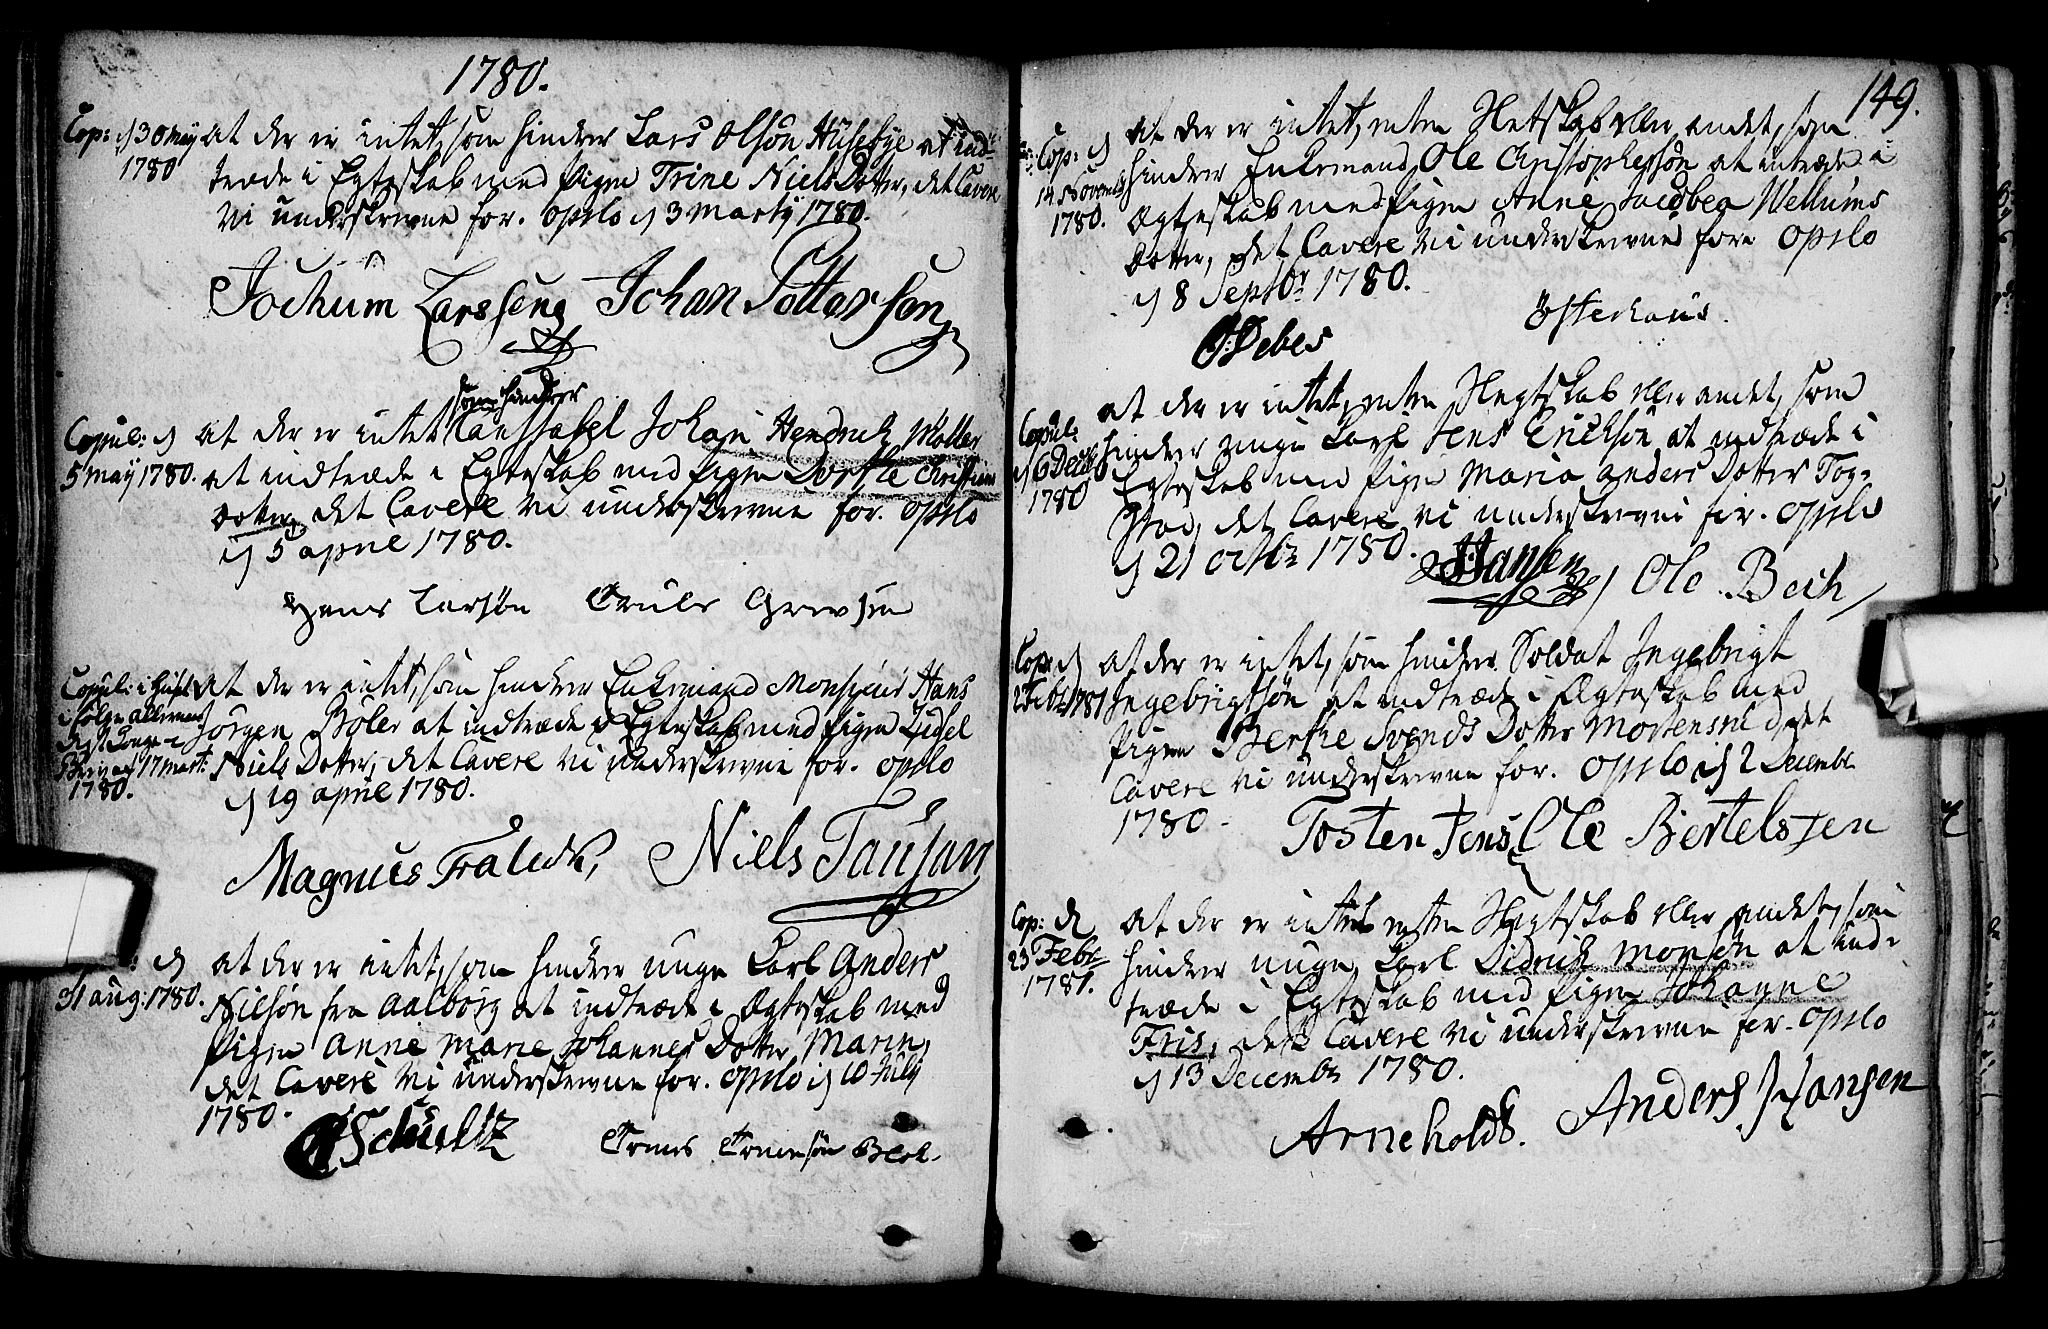 1780.
Cop: d 30 may
1780
at der er intet, som hindrer Lars Olsøn Huseby at ind-
træde i Egteskab med Pigen Trine Niels Dotter, det Cavere
vi underskrevne for. Opslo d 3 marty 1780.
Jochum Larsseng Johan Pettersen
Copul: d
5 may 1780.
som hindrer
at der er intet Johan Hendrich Møller
at indtræde i Egteskab med Pigen Dorthe Christians
Dotter, det Cavere vi underskrevne for. Opslo
d 5 aprie 1780.
Hans Larsøn Truls
Copul: i Huset
i følge allernaad
17 mart:
1780.
at der er intet, som hindrer Enkemand Monsieur Hans
Jørgen Bøler at indtræde i Egteskab med Pigen Zidsel
Niels Dotter, det Cavere vi underskrevne for. Opslo
d 19 aprie 1780.
Magnus Niels Tausan
d
31 aug: 1780.
at der er intet, som hindrer unge Karl Anders
Nilsøn fra Aalborg at indtræde i Ægteskab med
Pigen Anne Marie Johannes Dotter Marin,
det Cavere vi underskrevne for. Opslo d 10 July
1780.
Schultz
149.
Cop: d
14 Novemb
1780.
at der er intet, enten Sletskab eller andet, som
hindrer Enkemand Ole Christophersøn at intræde i
Ægteskab med Pigen Anne Jacobea Wellums
Dotter, det Cavere vi underskrevne fore Opslo
d 8 Septbr 1780.
Debes Østerhaus.
Copul:
d 6 Decbr
1780
at der er intet, enten Slegtskab eller andet, som
hindrer unge Karl Jens Erichsøn at indtræde i
Egteskab med Pigen Maria Anders Dotter Tog-
stad, det Cavere vi underskrevne for. Opslo
d 21 octbr 1780.
Hansen Ole Bech
Cop: d
2 Febr 1781
at der er intet, som hindrer Soldat Ingebrigt
Ingebrigtsøn at indtræde i Ægteskab med
Pigen Berthe Svends Dotter Mortensrud, det
Cavere vi underskrevne for. Opslo d 2 Decembr
1780.
Tosten Jens Ole Bertelssen
Cop: d
23 Febr
1781.
at der er intet enten Slegtskab eller andet, som
hindrer unge Karl Didrich Monsøn at ind-
træde i Egteskab med Pigen Johanne
Friis, det Cavere vi underskrevne for. Opslo
d 13 Decembr 1780.
Arneholdt. Anders Hansen